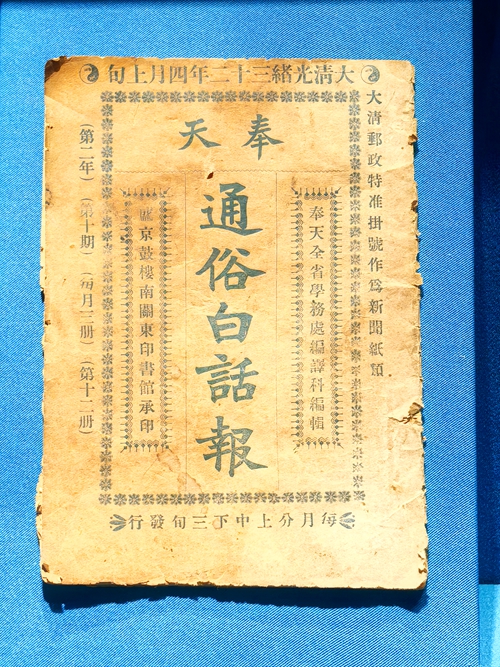 大清光緒三十二年四月上旬
大清郵政特准掛號作爲新聞紙類
奉天
奉天全省學務處編譯科編輯
通俗白話報
盛京鼓樓南關東印書館承印
（第二年）（第十期）（每月三册）（第十二册）
每月分上中下三旬發行